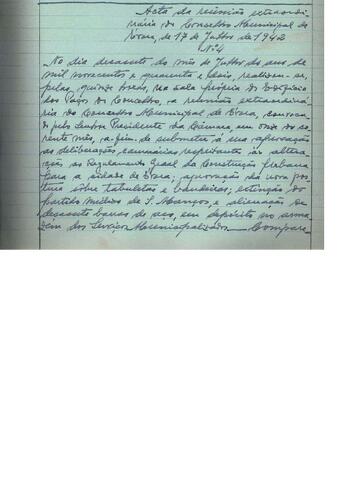 Acta da reunião extraordi-
nária do Concelho Municipal de
Évora, de 17 de Julho de 1942
Nº 4
No dia dezasete do mês de Julho do ano de
mil novecentos e quarenta e dois, realizou-se,
pelas quinze horas, na sala própria do Edifício
dos Paços do Concelho, a reunião extraordiná-
ria do Concelho Municipal de Évora, convoca-
do pelo Senhor Presidente da Câmara, em onze do co-
rrente mês, a-fim-de submeter á sua aprovação
as deliberações camarárias respeitantes ás altera-
ções ao Regulamento Geral da Construção Urbana
para a cidade de Évora; aprovação da nova pos-
tura sôbre tabuletas e bandeiras; extinção do
partido médico de S. Manços, e alienação de
dezasete barras de aço, em depósito no arma-
zem dos Serviços Municipalizados. Compare-